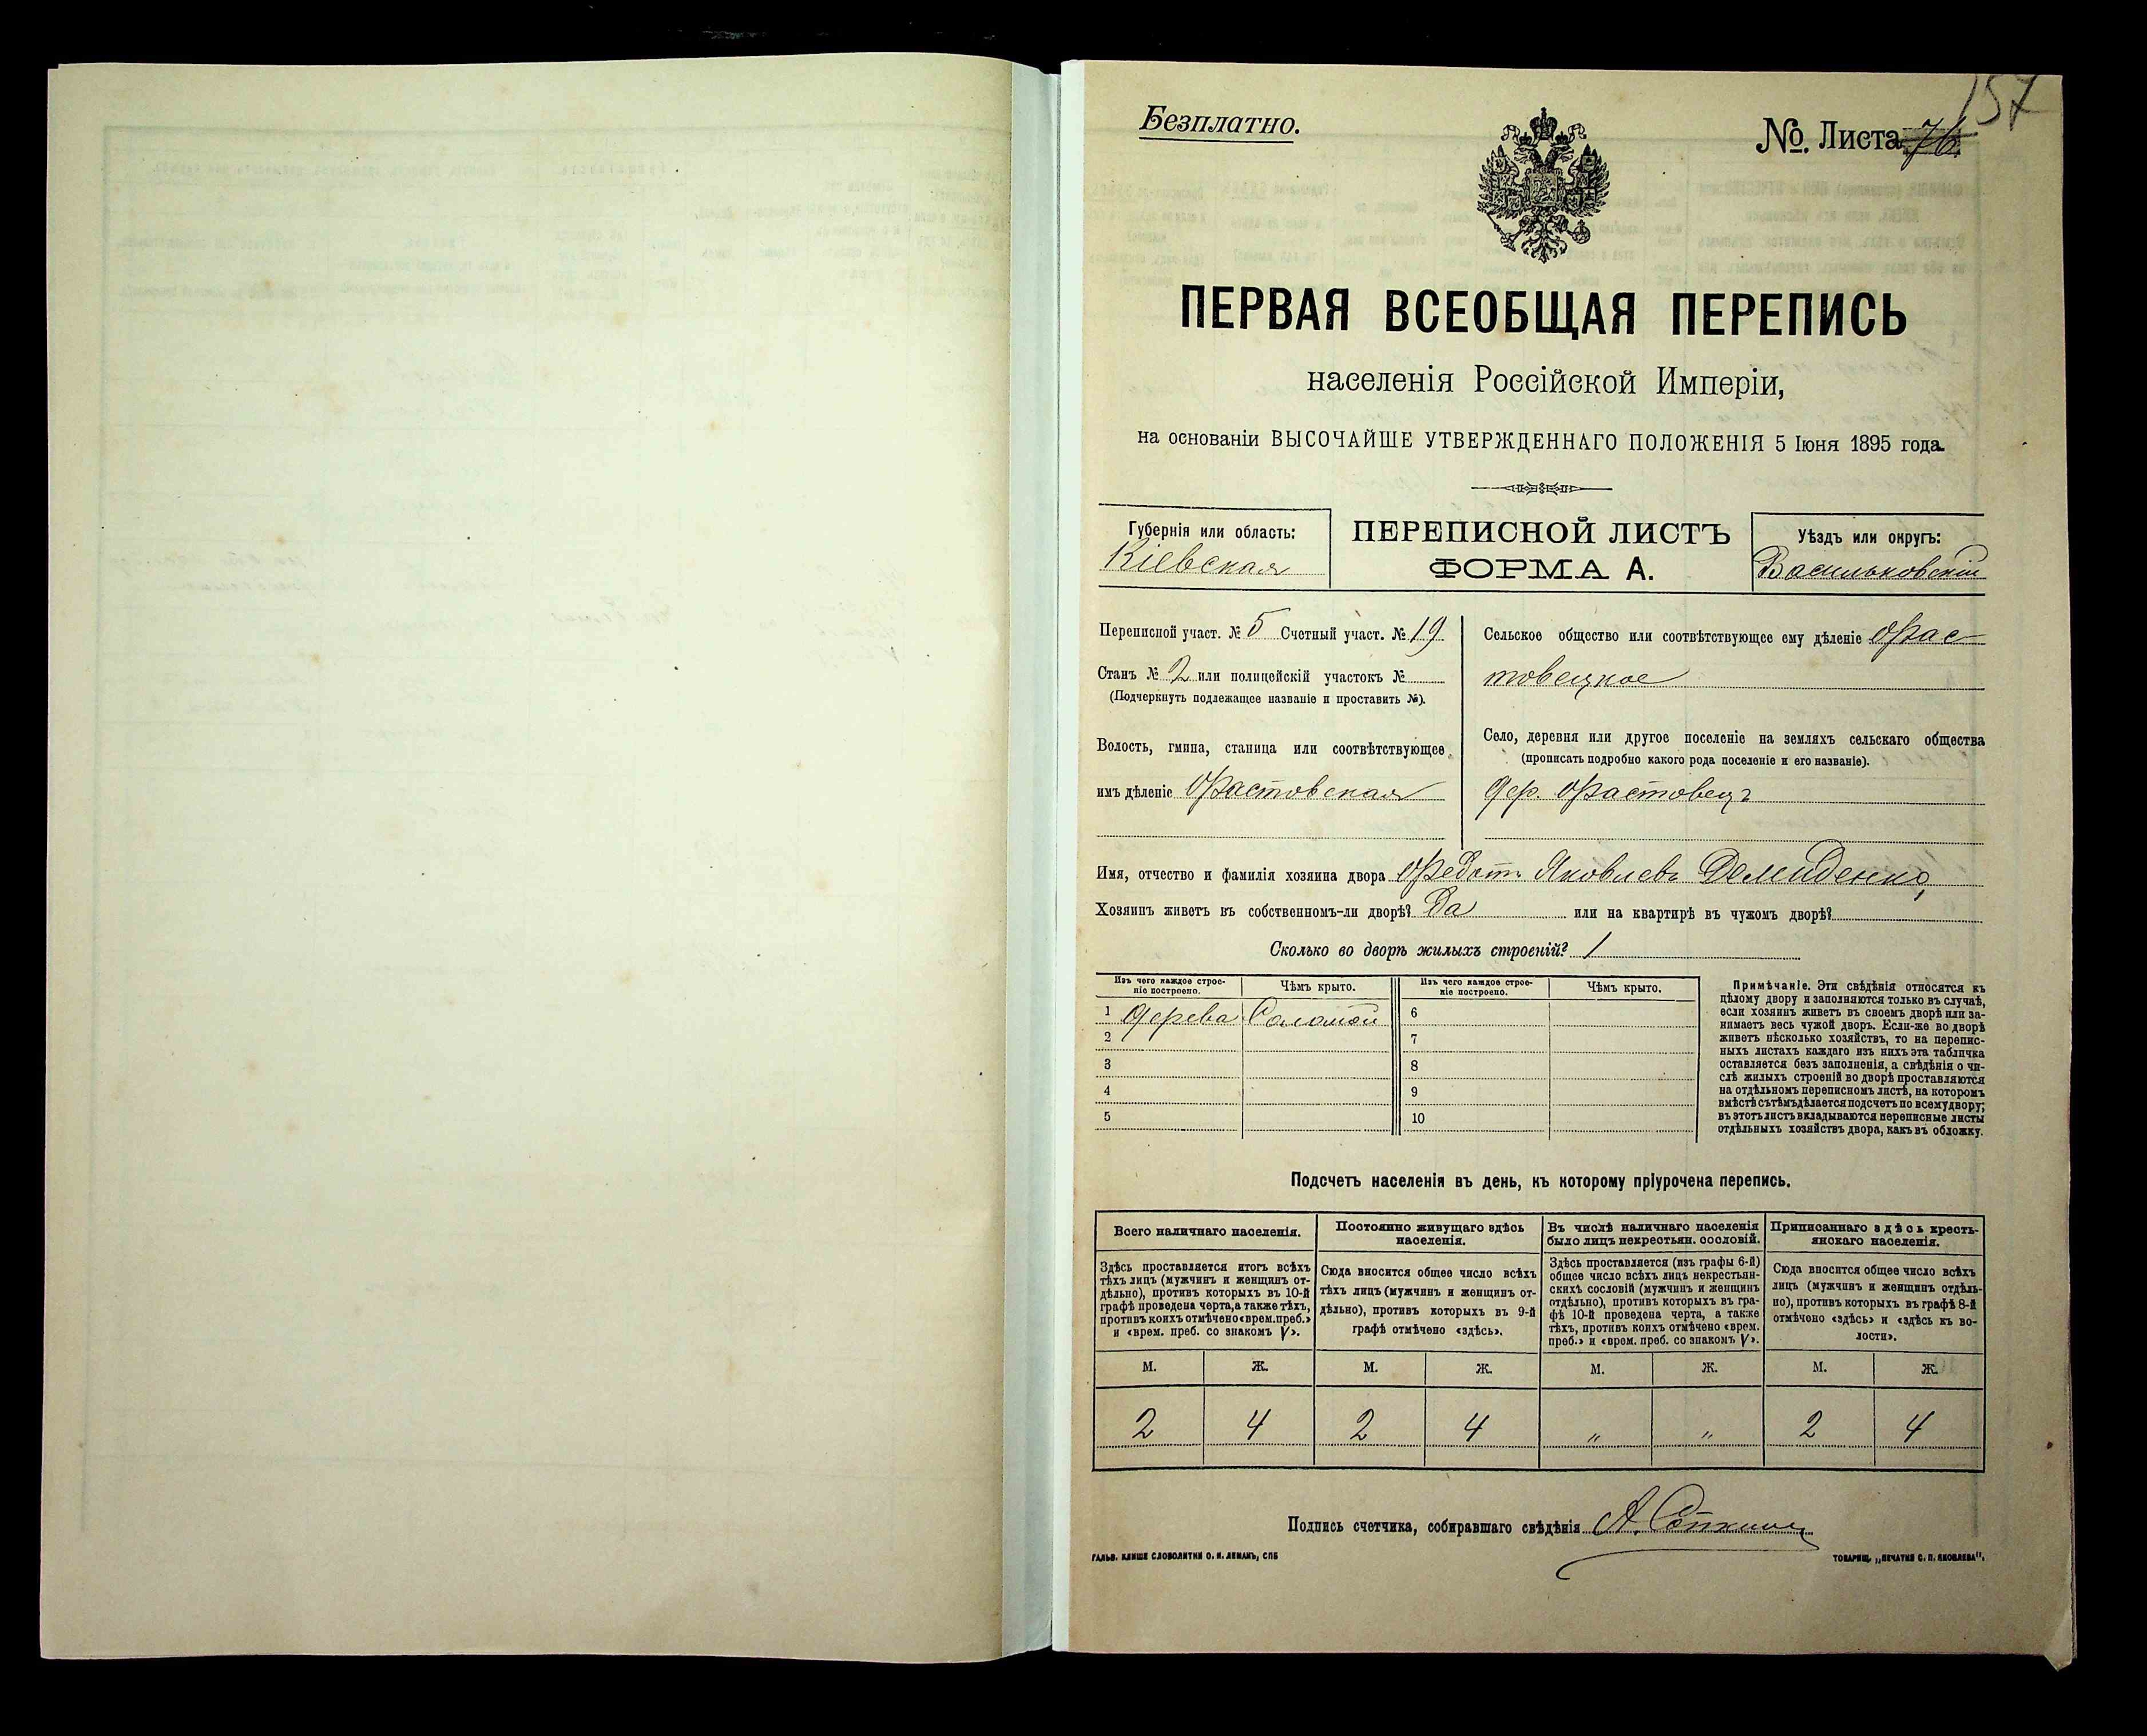 157
Безплатно.
№. Листа 76
ПЕРВАЯ ВСЕОБЩАЯ ПЕРЕПИСЬ
населенія Россійской Имперіи,
на основаніи ВЫСОЧАЙШЕ УТВЕРЖДЕННАГО ПОЛОЖЕНІЯ 5 Іюня 1895 года.
Губернія или область:
Кіевская
ПЕРЕПИСНОЙ ЛИСТЪ
ФОРМА А.
Уѣздъ или округъ:
Васильковскій
Переписной участ. № 5 Счетный участ. № 19
Станъ № 2 или полицейскій участокъ №
(Подчеркнуть подлежащее названіе и проставить №).
Волость, гмина, станица или соотвѣтствующее
имъ дѣленіе Фастовская
Сельское общество или соотвѣтствующее ему дѣленіе Фас-
товецкое
Село, деревня или другое поселеніе на земляхъ сельскаго общества
(прописать подробно какого рода поселеніе и его названіе).
дер. Фастовецъ
Имя, отчество и фамилія хозяина двора Федотъ Яковлевъ Демиденко,
Хозяинъ живетъ въ собственномъ-ли дворѣ? Да или на квартирѣ въ чужомъ дворѣ?
Сколько во дворѣ жилыхъ строеній? 1
Изъ чего каждое строе-
ніе построено.
Чѣмъ крыто.
Изъ чего каждое строе-
ніе построено.
Чѣмъ крыто.
1 Дерева Соломой 6
2 7
3 8
4 9
5 10
Примѣчаніе. Эти свѣдѣнія относятся къ
цѣлому двору и заполняются только въ случаѣ,
если хозяинъ живетъ въ своемъ дворѣ или за-
нимаетъ весь чужой дворъ. Если-же во дворѣ
живетъ нѣсколько хозяйствъ, то на перепис-
ныхъ листахъ каждаго изъ нихъ эта табличка
оставляется безъ заполненія, а свѣдѣнія о чи-
слѣ жилыхъ строеній во дворѣ проставляются
на отдѣльномъ переписномъ листѣ, на которомъ
вмѣстѣ съ тѣмъ дѣлается подсчетъ по всему двору;
въ этотъ листъ вкладываются переписные листы
отдѣльныхъ хозяйствъ двора, какъ въ обложку.
Подсчетъ населенія въ день, къ которому пріурочена перепись.
Всего наличнаго населенія.
Здѣсь проставляется итогъ всѣхъ
тѣхъ лицъ (мужчинъ и женщинъ от-
дѣльно), противъ которыхъ въ 10-й
графѣ проведена черта, а также тѣхъ,
противъ коихъ отмѣчено «врем. преб.»
и «врем. преб. со знакомъ V».
Постоянно живущаго здѣсь
населенія.
Сюда вносится общее число всѣхъ
тѣхъ лицъ (мужчинъ и женщинъ от-
дѣльно), противъ которыхъ въ 9-й
графѣ отмѣчено «здѣсь».
Въ числѣ наличнаго населенія
было лицъ некрестьян. сословій.
Здѣсь проставляется (изъ графы 6-й)
общее число всѣхъ лицъ некрестьян-
скихъ сословій (мужчинъ и женщинъ
отдѣльно), противъ которыхъ въ гра-
фѣ 10-й проведена черта, а также
тѣхъ, противъ коихъ отмѣчено «врем.
преб.» и «врем. преб. со знакомъ V».
Приписаннаго здѣсь кресть-
янскаго населенія.
Сюда вносится общее число всѣхъ
лицъ (мужчинъ и женщинъ отдѣль-
но), противъ которыхъ въ графѣ 8-й
отмѣчено «здѣсь» и «здѣсь къ во-
лости».
М. Ж. М. Ж. М. Ж. М. Ж.
2 4 2 4 " " 2 4
Подпись счетчика, собиравшаго свѣдѣнія А.
ГАЛЬВ. КЛИШЕ СЛОВОЛИТНИ О. И. ЛЕМАНЪ, СПБ
ТОВАРИЩ. „ПЕЧАТНЯ С. П. ЯКОВЛЕВА".